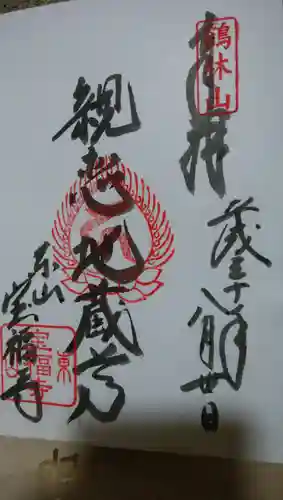 鶴林山
奉拝
平成三十年
八月廿日
親恋地蔵尊
東山
宝福寺